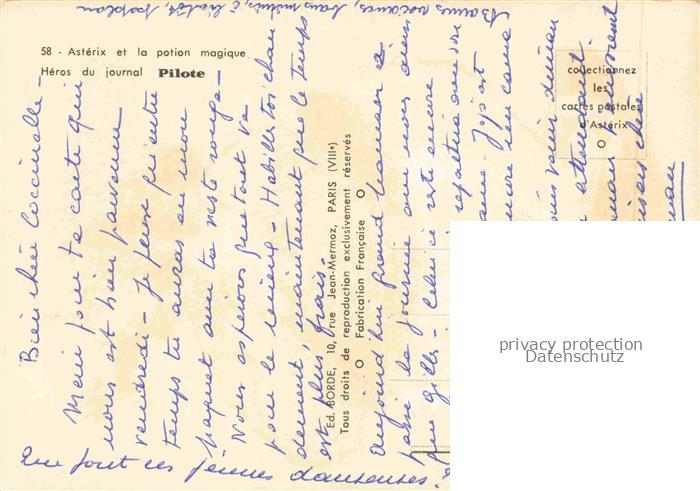 58 - Astérix et la potion magique
Héros du journal Pilote
collectionnez
les
cartes postales
d'Astérix
Ed. BORDE, 10, rue Jean-Mermoz, PARIS (VIIIe)
Tous droits de reproduction exclusivement réservés
Fabrication Française
Bien chère Coccinelle -
Merci pour ta carte qui
nous est bien parvenue
vendredi - Je pense qu'entre
temps tu auras eu mon
paquet avec ta veste rouge -
Nous espérons que tout va
pour le mieux - Habille toi chau
dement, maintenant que le temps
est plus frais.
Aujourd'hui grand maman a
passé la journée avec nous ainsi
que gilles - Celui-ci reste encore
attendant
Que font ces jeunes danseuses
Bonnes vacances, à bientôt,
privacy protection
Datenschutz